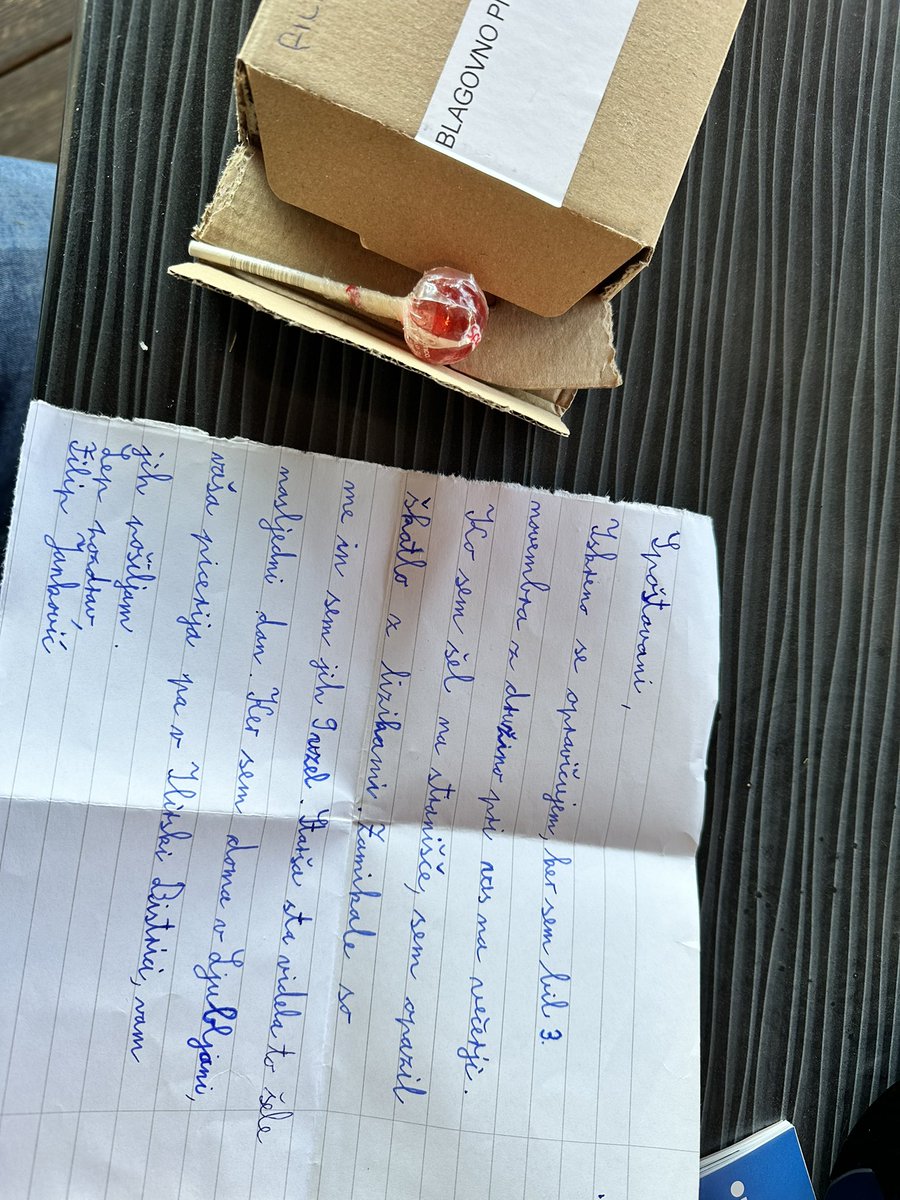 BLAGOVNO
Spoštovani,
Iskreno se opravičujem, ker sem bil 3.
novembra z družino pri vas na večerji.
Ko sem šel na stranišče, sem opazil
škatlo z lizikami. Zamikale so
me in sem jih 9 vzel. Starša sta videla to šele
nasljedni dan. Ker sem doma v Ljubljani,
vaša picerija pa v Ilirski Bistrici, vam
jih pošiljam.
Lep pozdrav,
Filip Janković